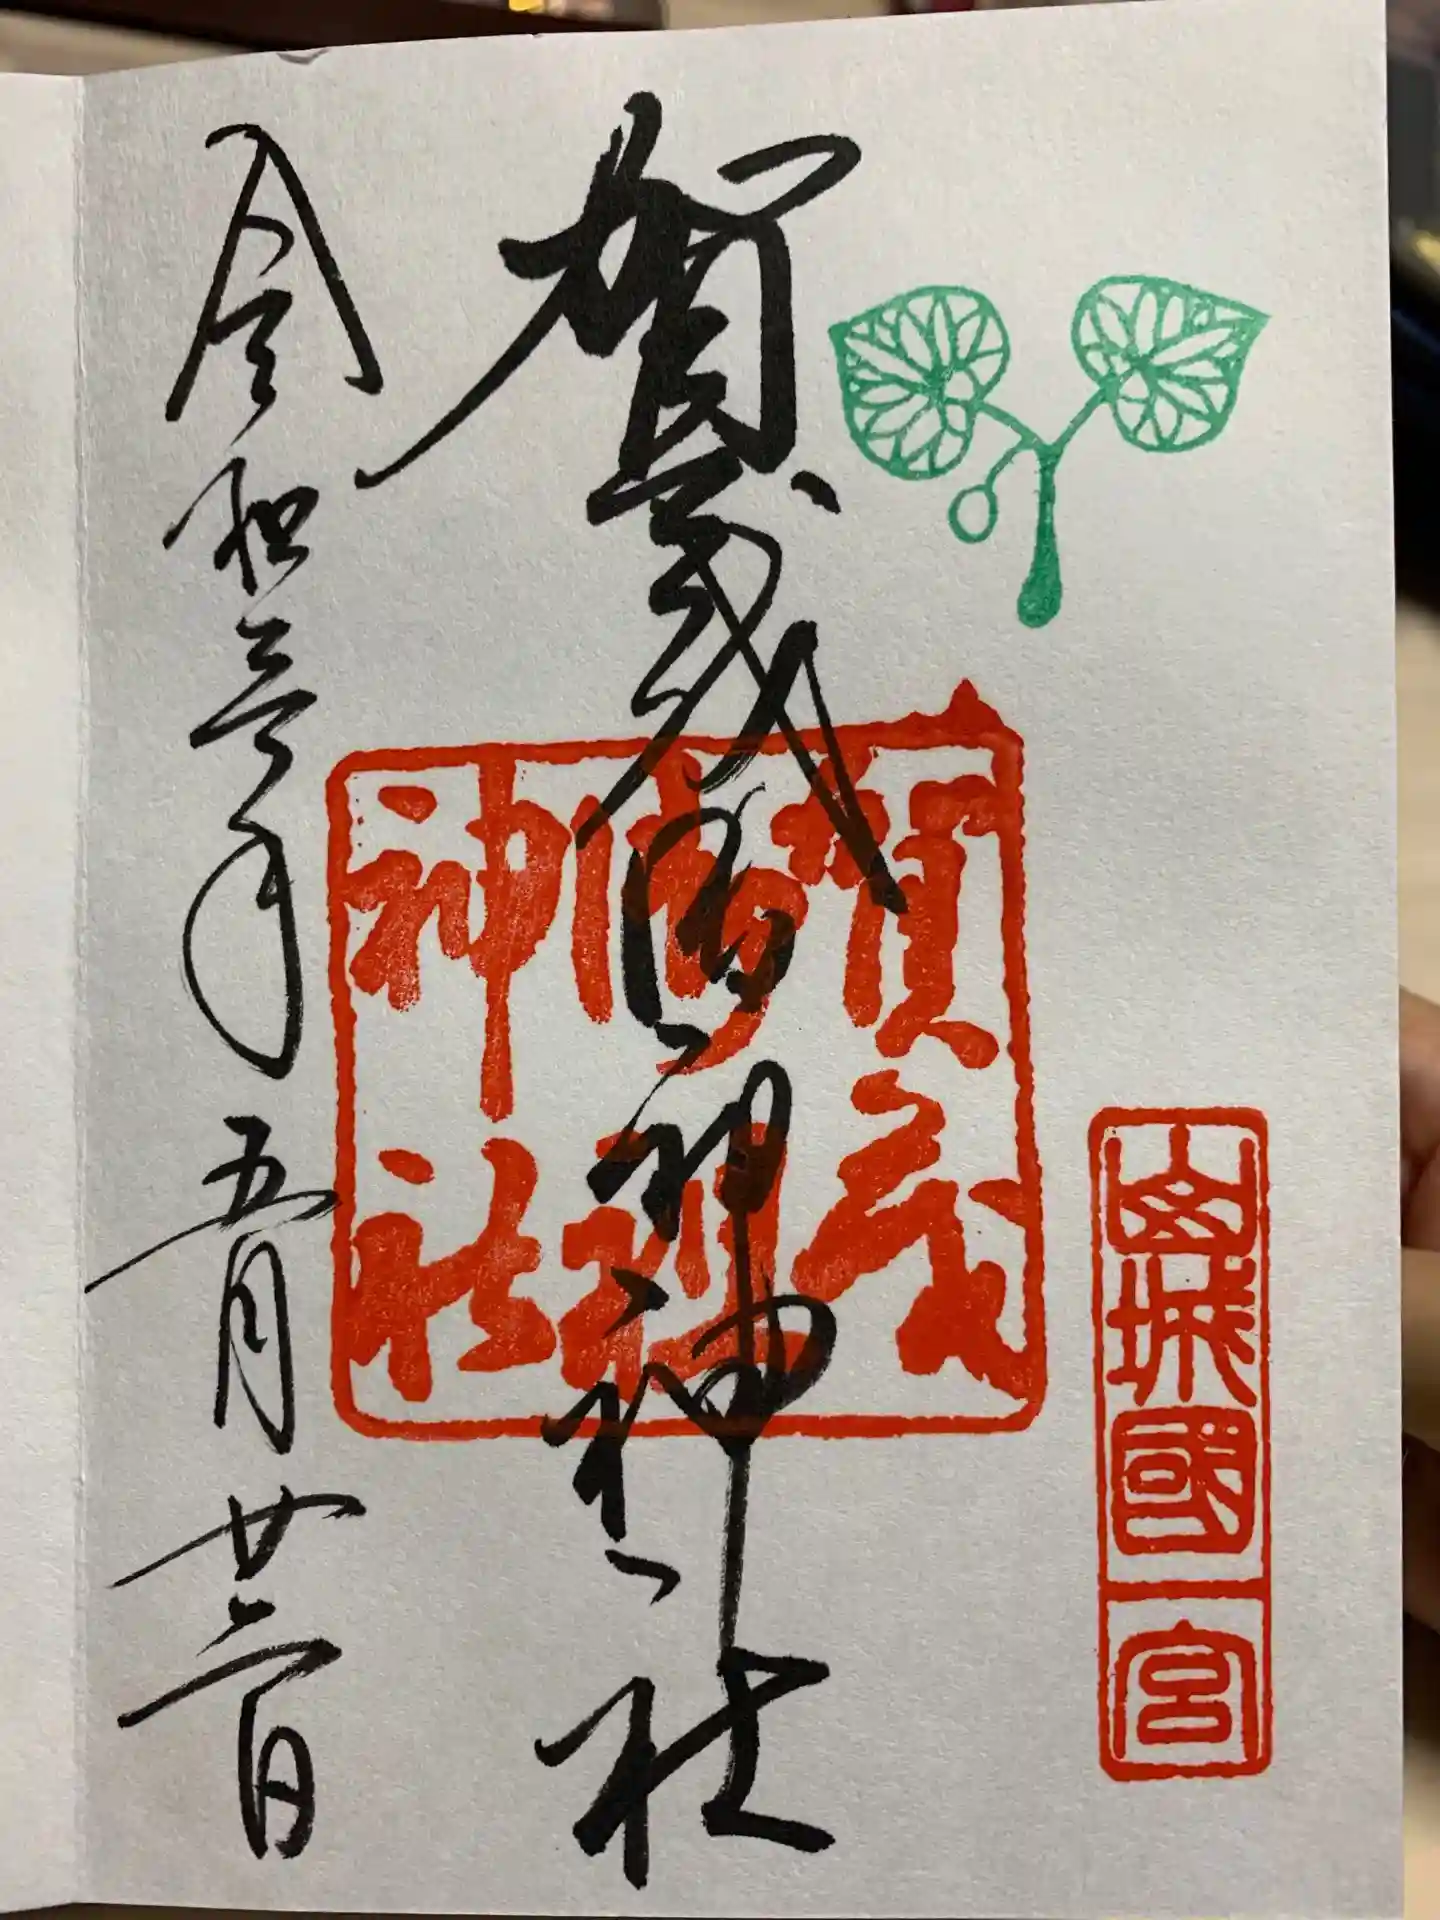 山城國一宮
賀茂御祖神社
賀茂
御祖
神社
令和三年五月廿二日